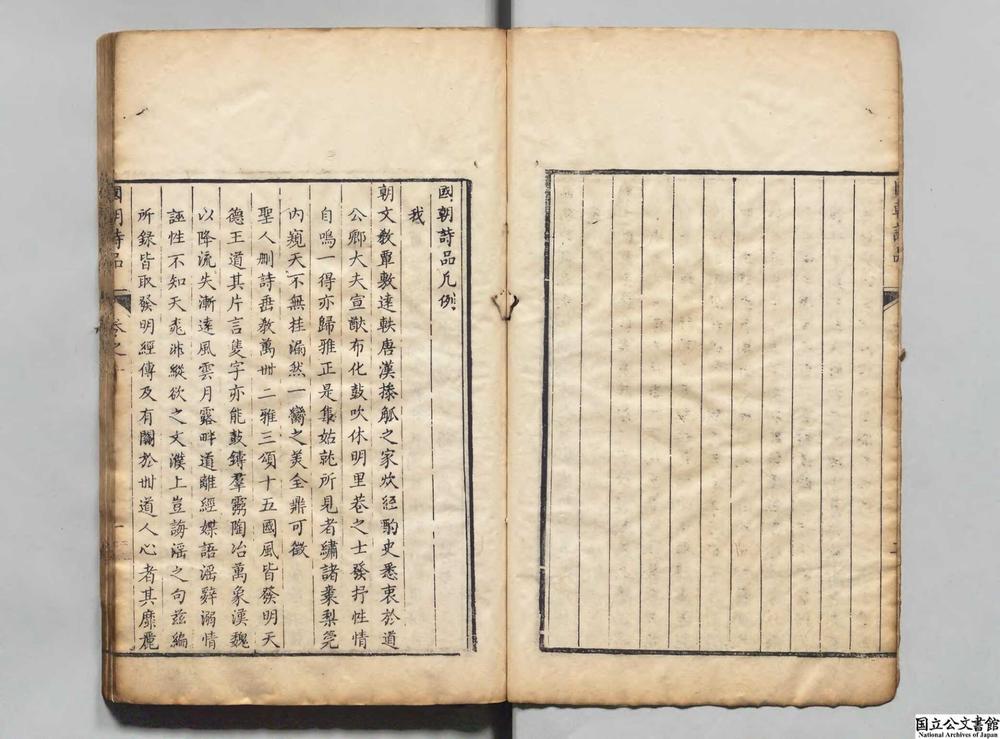 國朝詩品凡例
我
朝文敎覃敷達軼唐漢操觚之家炊經酌史悉衷於道
公卿大夫宣猷布化鼓吹休明里巷之士發抒性情
自鳴一得亦歸雅正是集姑就所見者繡諸棗梨筦
內窺天不無挂漏然一臠之美全鼎可徵
聖人刪詩垂敎萬世二雅三頌十五國風皆發明天
德王道其片言隻字亦能鼓鑄羣霧陶冶萬象漢魏
以降流失漸遠風雲月露畔道離經媒語滛辭溺情
誣性不知天乖淋縱欲之文濮上豈誨滛之句茲編
所錄皆取發明經傳及有關於世道人心者其靡麗
國朝詩品
國立公文書館
National Archives of Japan